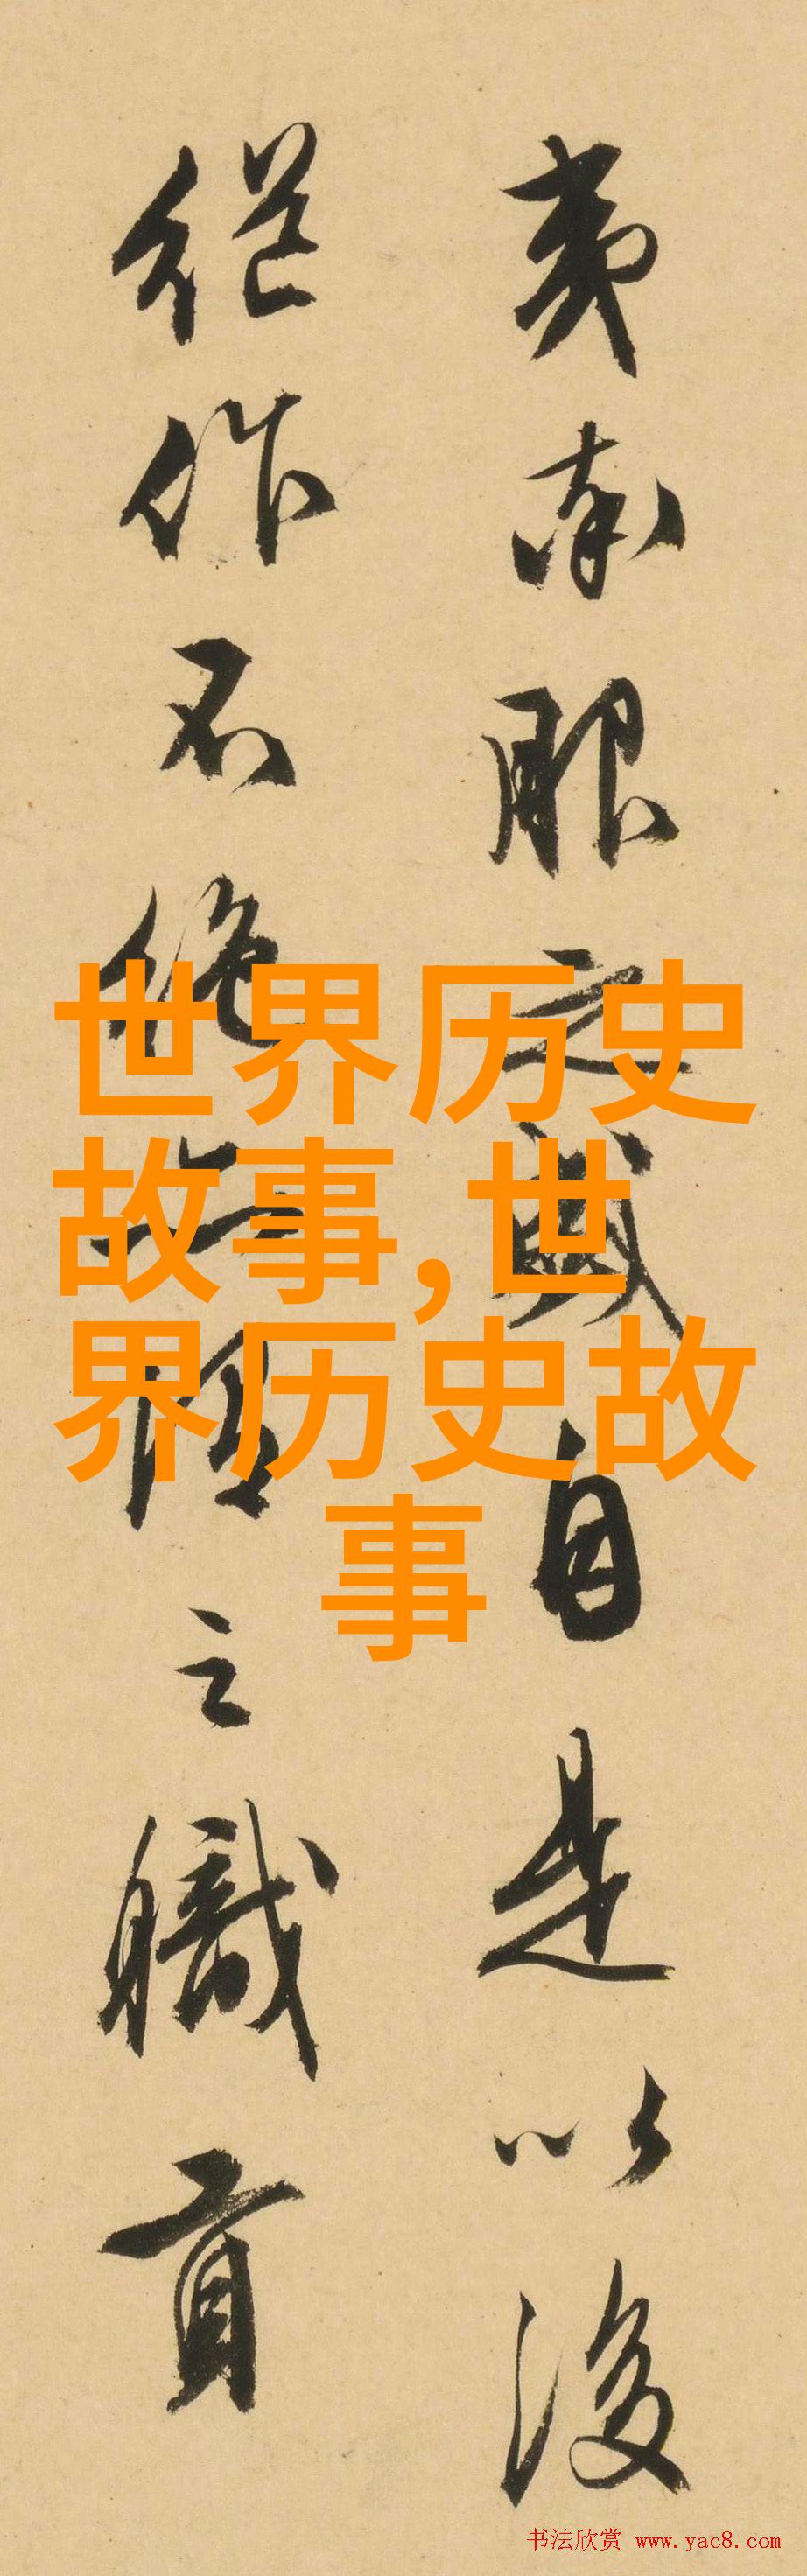 夷率服之盛自是以後
繼作不絕之職貢
世界历史
故事,世
界历史故
事
书法欣赏 www.yac8.com